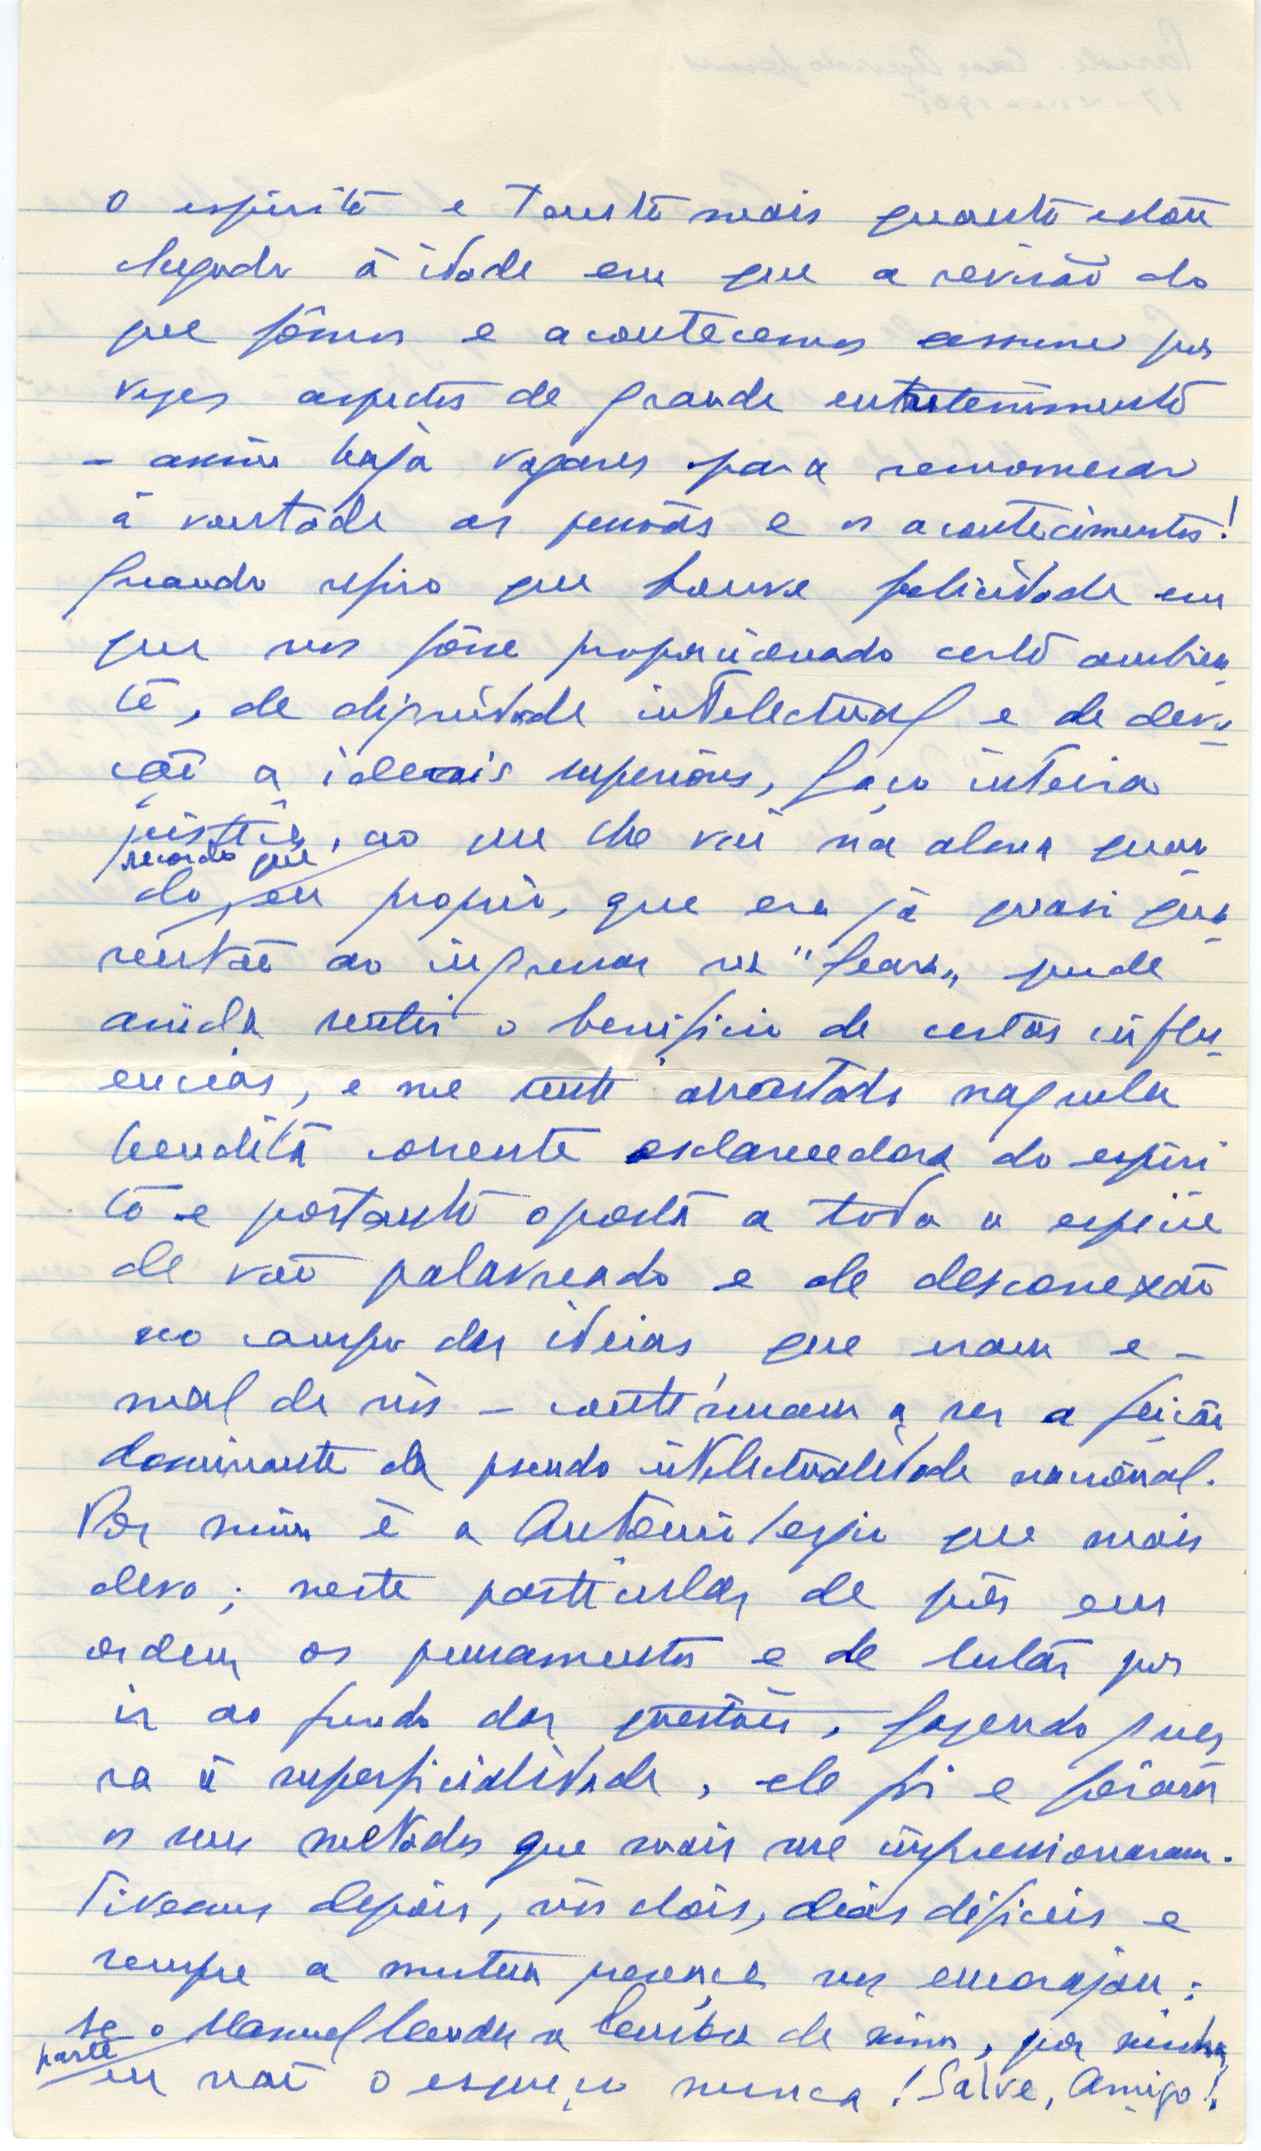 o espirito e tanto mais quanto estou
chegado à idade em que a revisão do
que fômos e acontecemos assume por
vezes aspectos de grande entretenimento
- assim haja vagares para rememorar
à vontade as pessoas e os acontecimentos!
Quando refiro que houve felicidade em
que nos fôsse proporcionado certo ambien_
te, de dignidade intelectual e de devo_
ção a ideais superiores, faço inteira
justiça, ao que lhe vai na alma quan_
recordo que
do, eu proprio, que era já quasi qua_
rentão ao ingressar na "Seara", pude
ainda sentir o beneficio de certas influ_
encias, e me senti arrastado naquela
bendita corrente esclarecedora do espiri
to e portanto oposta a toda a espécie
de vão palavreado e de desconexão
no campo das ideias que eram e -
mal de nós - continuam a ser a feição
dominante da pseudo intelectualidade nacional.
Por mim é a Antonio Sergio que mais
devo; neste particular de pôr em
ordem os pensamentos e de lutar por
ir ao fundo das questões, fazendo guer_
ra à superficialidade, ele foi e fôram
os seus metodos que mais me impressionaram.
Tivemos depois, nós dois, dias dificeis e
sempre a mutua presença nos encorajou:
se o Manuel Mendes se lembra de mim, por minha
parte
eu não o esqueço nunca! Salve, Amigo!